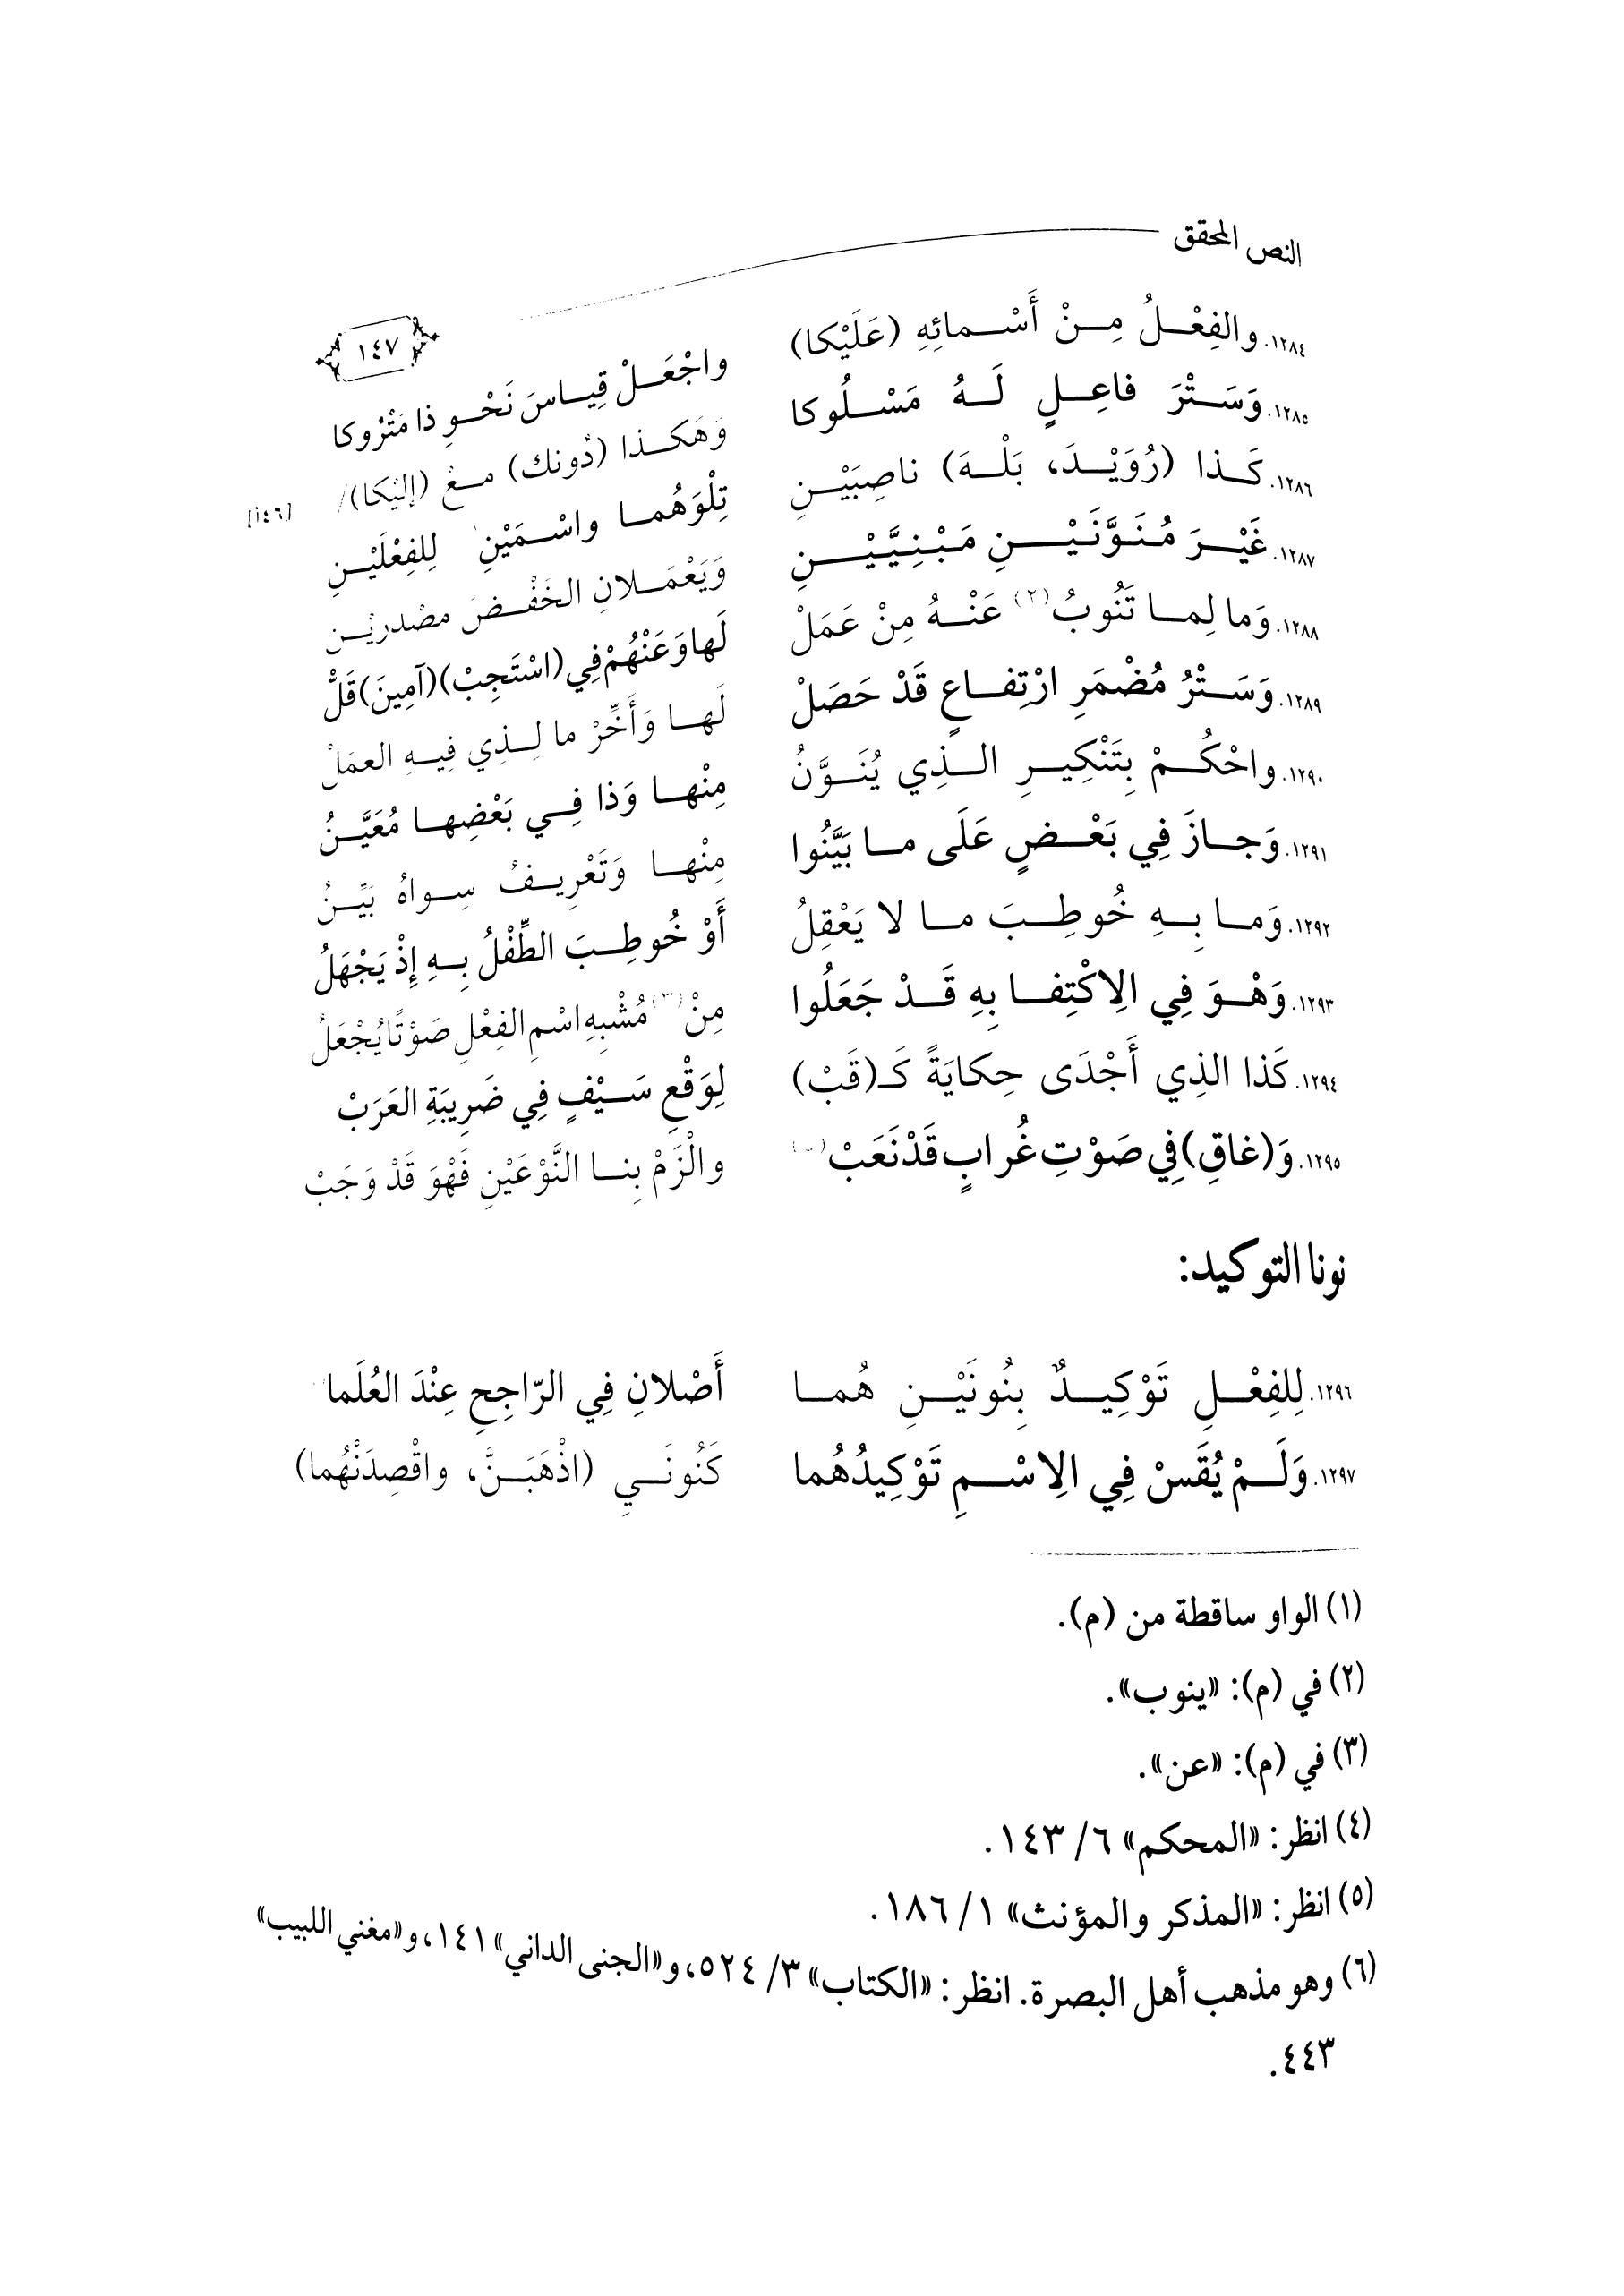 النص المحقق
١٤٧
١٢٨٤. والفِعْلُ مِنْ أَسْمائِهِ (عَلَيْكا) واجْعَلْ قِياسَ نَحْوِ ذا مَتْرُوكا
١٢٨٥. وَسَتْرَ فاعِلٍ لَهُ مَسْلُوكا وَهَكَذا (دُونك) مَعْ (إليْكا)/ [١٤٦أ]
١٢٨٦. كَذا (رُوَيْدَ، بَلْهَ) ناصِبَيْنِ تِلْوَهُما واسْمَيْنِ لِلفِعْلَيْنِ
١٢٨٧. غَيْرَ مُنَوَّنَيْنِ مَبْنِيَّيْنِ وَيَعْمَلانِ الخَفْضَ مصْدريْنِ
١٢٨٨. وَما لِما تَنُوبُ(٢) عَنْهُ مِنْ عَمَلْ لَها وَعَنْهُمْ فِي (اسْتَجِبْ) (آمِينَ) قَلّْ
١٢٨٩. وَسَتْرُ مُضْمَرِ ارْتِفاعٍ قَدْ حَصَلْ لَها وَأَخِّرْ ما لِذِي فِيهِ العمَلْ
١٢٩٠. واحْكُمْ بِتَنْكِيرِ الذِي يُنَوَّنُ مِنْها وَذا فِي بَعْضِها مُعَيَّنُ
١٢٩١. وَجازَ فِي بَعْضٍ عَلَى ما بَيَّنُوا مِنْها وَتَعْرِيفُ سِواهُ بَيِّنُ
١٢٩٢. وَما بِهِ خُوطِبَ ما لا يَعْقِلُ أَوْ خُوطِبَ الطِّفْلُ بِهِ إِذْ يَجْهَلُ
١٢٩٣. وَهْوَ فِي الِاكْتِفا بِهِ قَدْ جَعَلُوا مِنْ(٣) مُشْبِهِ اسْمِ الفِعْلِ صَوْتًا يُجْعَلُ
١٢٩٤. كَذا الذِي أَجْدَى حِكايَةً كَـ(قَبْ) لِوَقْعِ سَيْفٍ فِي ضَرِيبَةِ العَرَبْ
١٢٩٥. وَ(غاقِ) فِي صَوْتِ غُرابٍ قَدْ نَعَبْ والْزَمْ بِنا النَّوْعَيْنِ فَهْوَ قَدْ وَجَبْ
نونا التوكيد:
١٢٩٦. لِلفِعْلِ تَوْكِيدٌ بِنُونَيْنِ هُما أَصْلانِ فِي الرّاجِحِ عِنْدَ العُلَما
١٢٩٧. وَلَمْ يُقَسْ فِي الِاسْمِ تَوْكِيدُهُما كَنُونَيِ (اذْهَبَنَّ، واقْصِدَنْهُما)
(١) الواو ساقطة من (م).
(٢) في (م): «ينوب».
(٣) في (م): «عن».
(٤) انظر: «المحكم» ٦/ ١٤٣.
(٥) انظر: «المذكر والمؤنث» ١/ ١٨٦.
(٦) وهو مذهب أهل البصرة. انظر: «الكتاب» ٣/ ٥٢٤، و«الجنى الداني» ١٤١، و«مغني اللبيب»
٤٤٣.